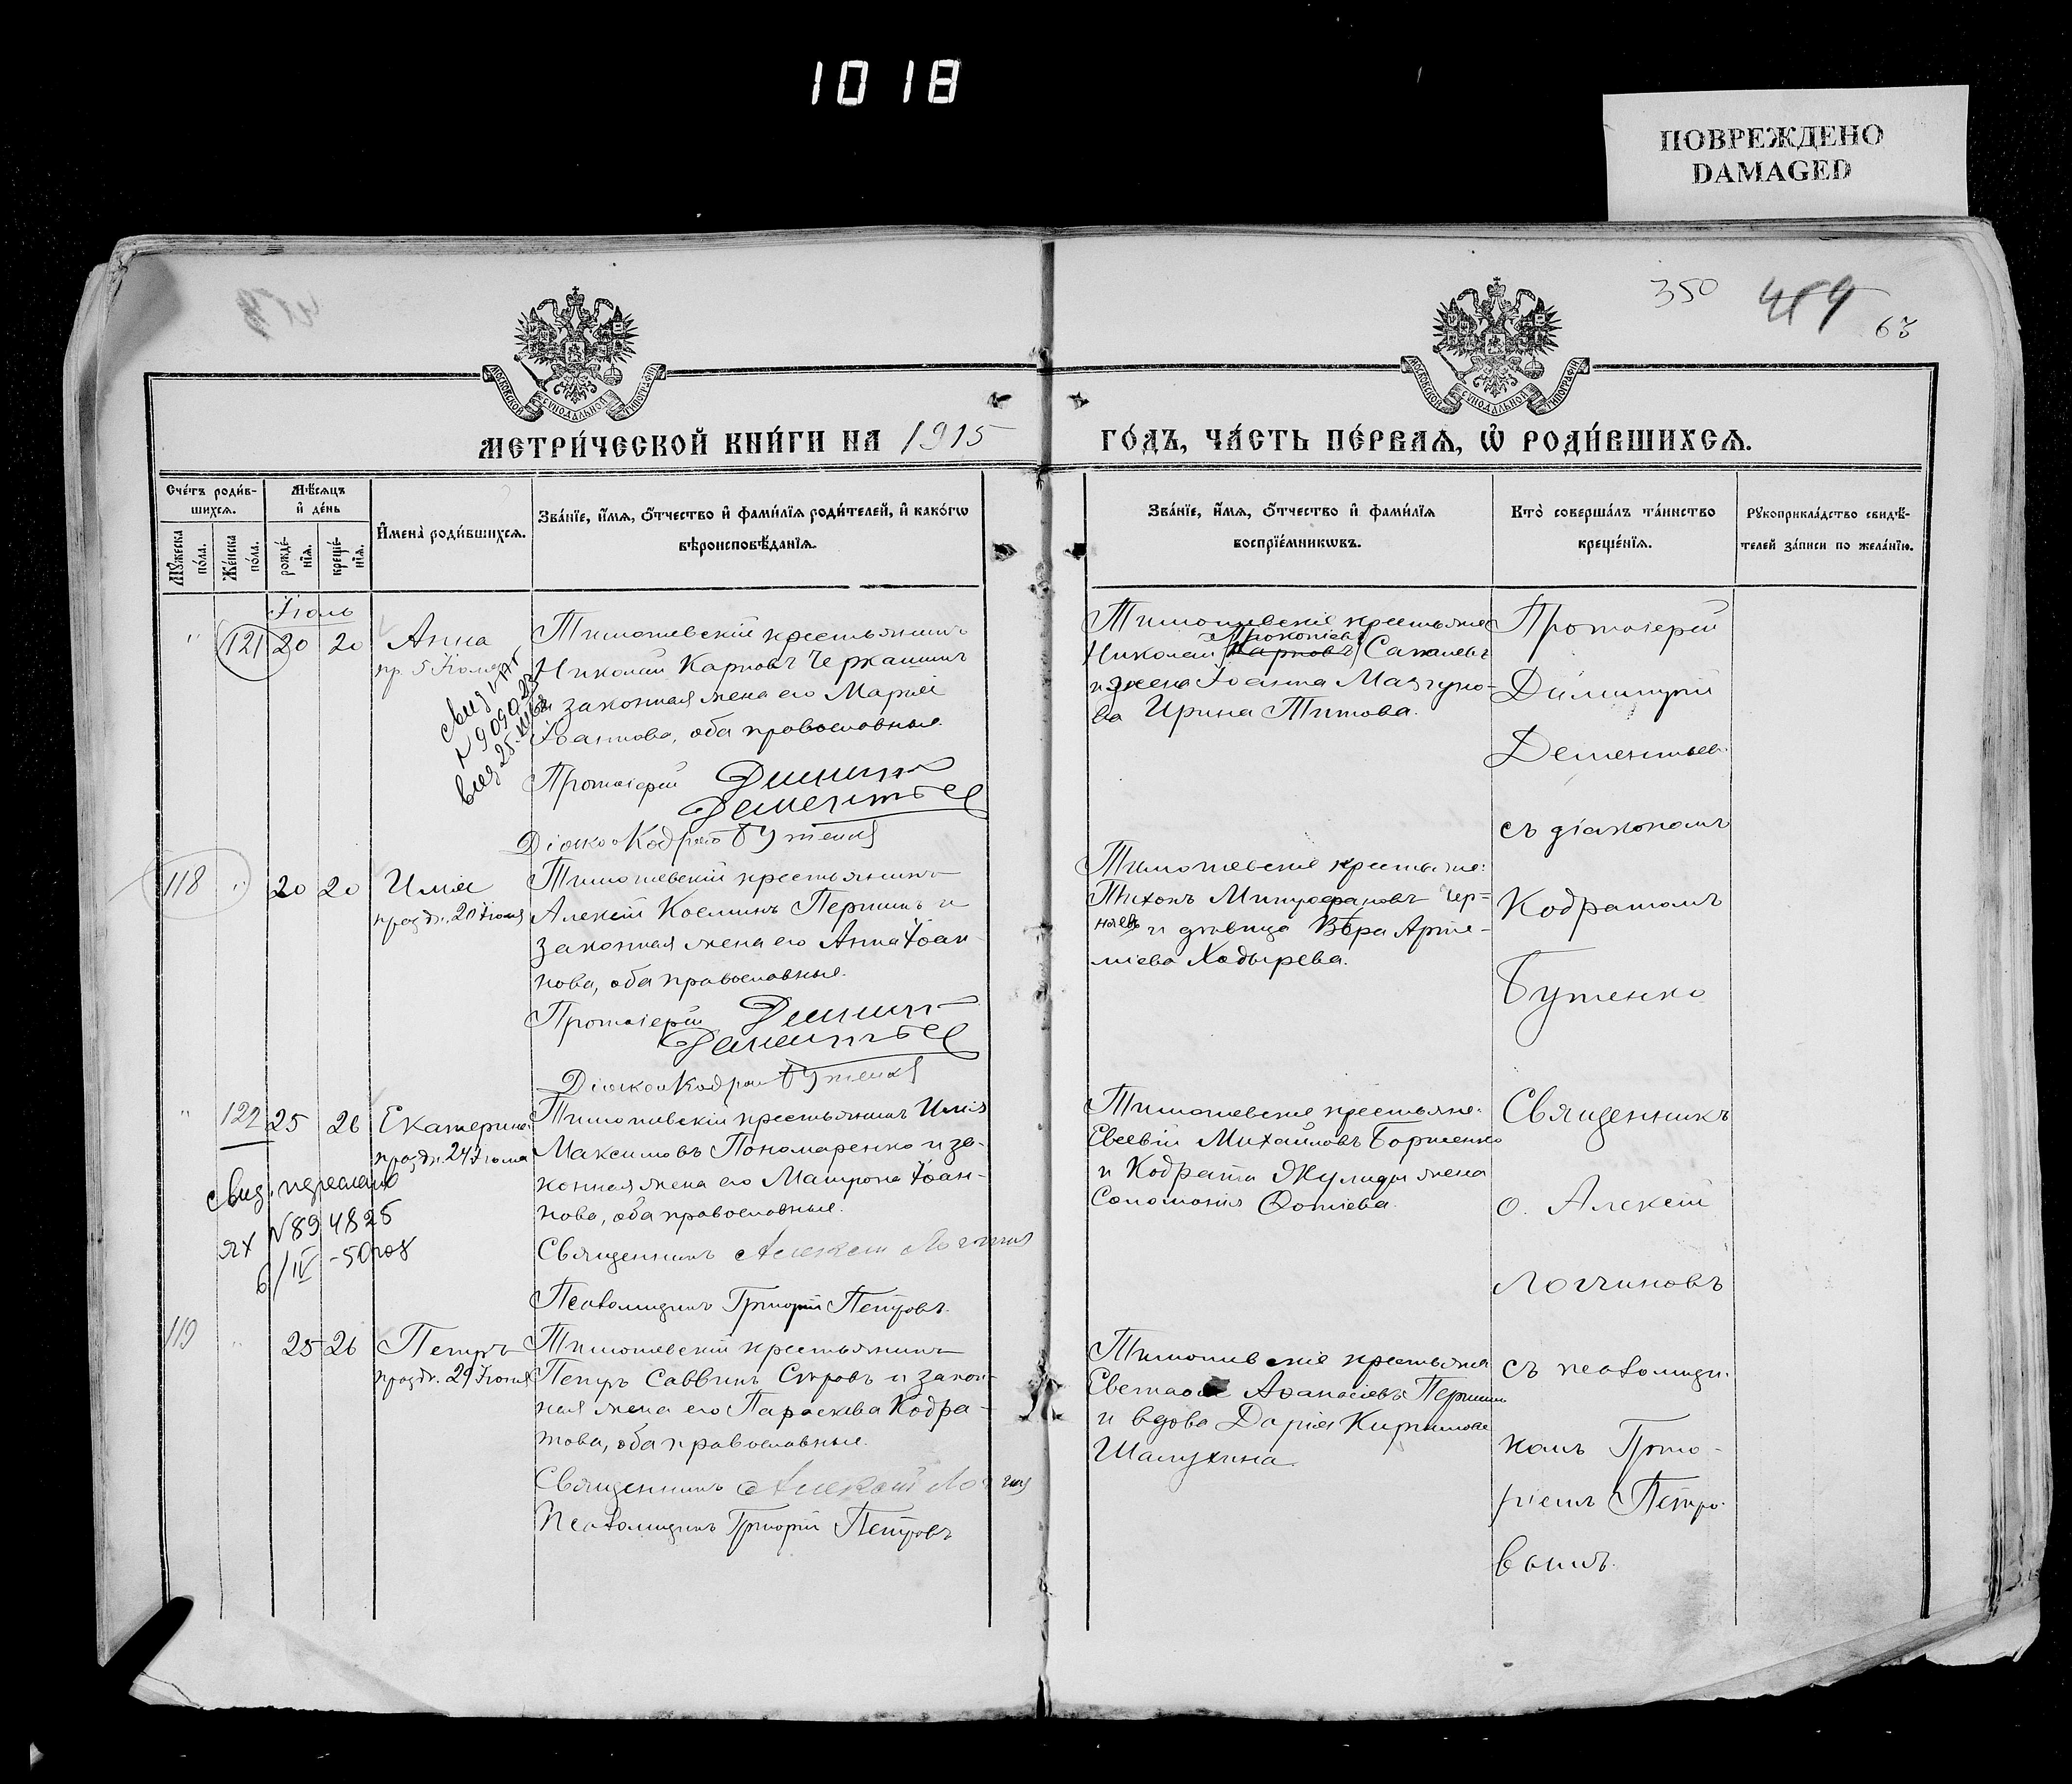 1018
ПОВРЕЖДЕНО
DAMAGED
350 459
63
МОСКОВСКОЙ СѴНОДАЛЬНОЙ ТИПОГРАФІИ
МОСКОВСКОЙ СѴНОДАЛЬНОЙ ТИПОГРАФІИ
МЕТРИ́ЧЕСКОЙ КНИ́ГИ НА 1915
ГО́ДЪ, ЧА́СТЬ ПЕ́РВАѦ, Ѡ҆ РОДИ́ВШИХСѦ.
Сче́тъ роди́в-
шихсѧ.
Мꙋ́жеска по́ла.
Же́нска по́ла.
Мѣ́сѧцъ
и҆ де́нь
рожде́-
нїѧ.
креще́-
нїѧ.
И҆мена̀ роди́вшихсѧ.
Зва́нїе, и҆́мѧ, ѻ҆́тчество и҆ фами́лїѧ роди́телей, и҆ како́гѡ
вѣроисповѣ́данїѧ.
Зва́нїе, и҆́мѧ, ѻ҆́тчество и҆ фами́лїѧ
воспрїе́мникѡвъ.
Кто̀ соверша́лъ та́инство
креще́нїѧ.
Рꙋкоприкла́дство свидѣ́-
телей за́писи по жела́нїю.
Іюль
" 121 20 20 Анна
пр. 5 Іюля
Тимошевскій крестьянинъ
Николай Карповъ Черкашинъ
и законная жена его Марія
Іоаннова, оба православные
Протоіерей Димитрій
Дементьев
Діакон Кодрат Бутенко
Тимошевскіе крестьяне
Прокопіевъ
Николай Карповъ
и жена Іоанна
ва Ирина Титова.
Протоіерей
Димитрій
Дементьев
съ діакономъ
Кодратомъ
Бутенко
118 " 20 20 Илія
праздн. 20 Іюля
Тимошевскій крестьянинъ
Алексій Косминъ Першинъ и
законная жена его Анна Іоан-
нова, оба православные.
Протоіерей Димитрій
Дементьев
Діакон Кодрат Бутенко
Тимошевскіе крестьяне:
Тихонъ Митрофановъ Чер-
наевъ и дѣвица Вѣра Арте-
міева Хадырева.
" 122 25 26 Екатерина
праздн. 24 Іюля
Свид. переслано
N 89 4825
6/IV - 50 год
Тимошевскій крестьянинъ Илія
Максимовъ Пономаренко и за-
конная жена его Матрона Іоан-
нова, оба православные.
Священникъ Алексій Логгинов
Псаломщикъ Григорій Петровъ.
Тимошевскіе крестьяне:
Евсевій Михайловъ Борженко
и Кодрата Жулиды жена
Соломонія Фотіева.
Священникъ
о. Алексій
Логгиновъ
съ псаломщи-
комъ Григо-
ріемъ Петро-
вымъ.
119 " 25 26 Петръ
праздн. 29 Іюня
Тимошевскій крестьянинъ
Петръ Саввинъ и закон-
ная жена его Параскева Кодра-
това, оба православные.
Священникъ Алексій Логгинов
Псаломщикъ Григорій Петровъ
Тимошевскіе крестьяне
Евстафій Афанасіевъ Першинъ
и вдова Дарія Кириллова
Шалухина